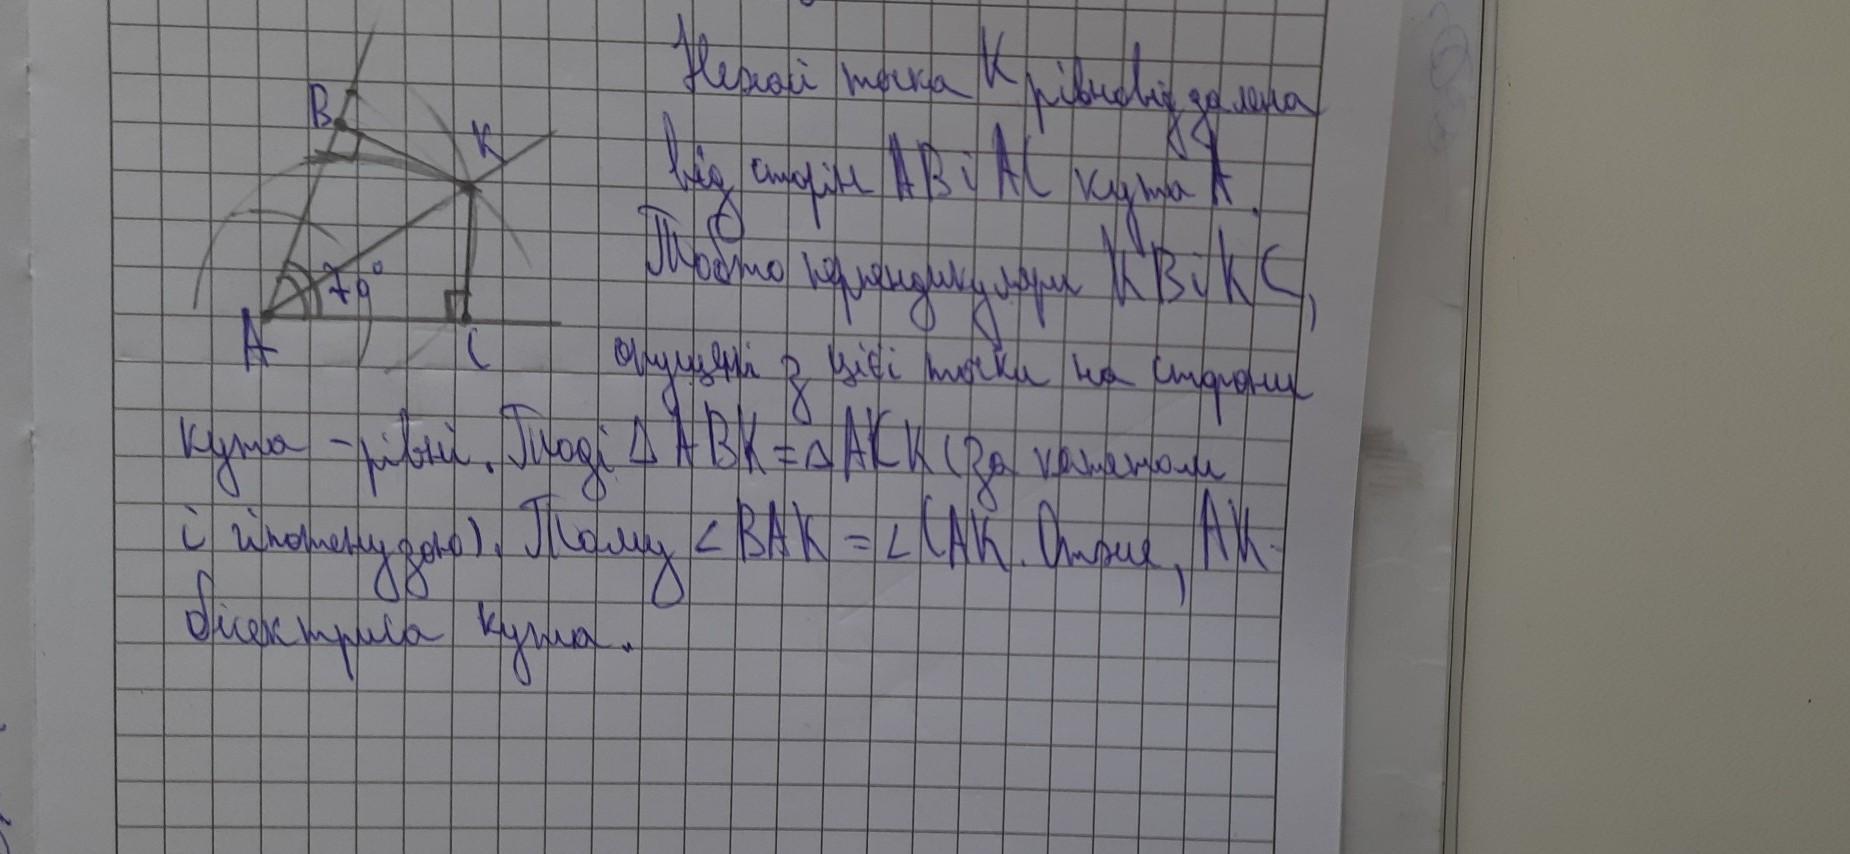 B
K
70°
A
C
Нехай точка K рівновіддалена
від сторін AB і AC кута A.
Тобто перпендикуляри KB і KC,
опущені з цієї точки на сторони
кута - рівні. Тоді Δ ABK = Δ ACK (за катетом
і гіпотенузою). Тому ∠BAK = ∠CAK. Отже, AK-
бісектриса кута.